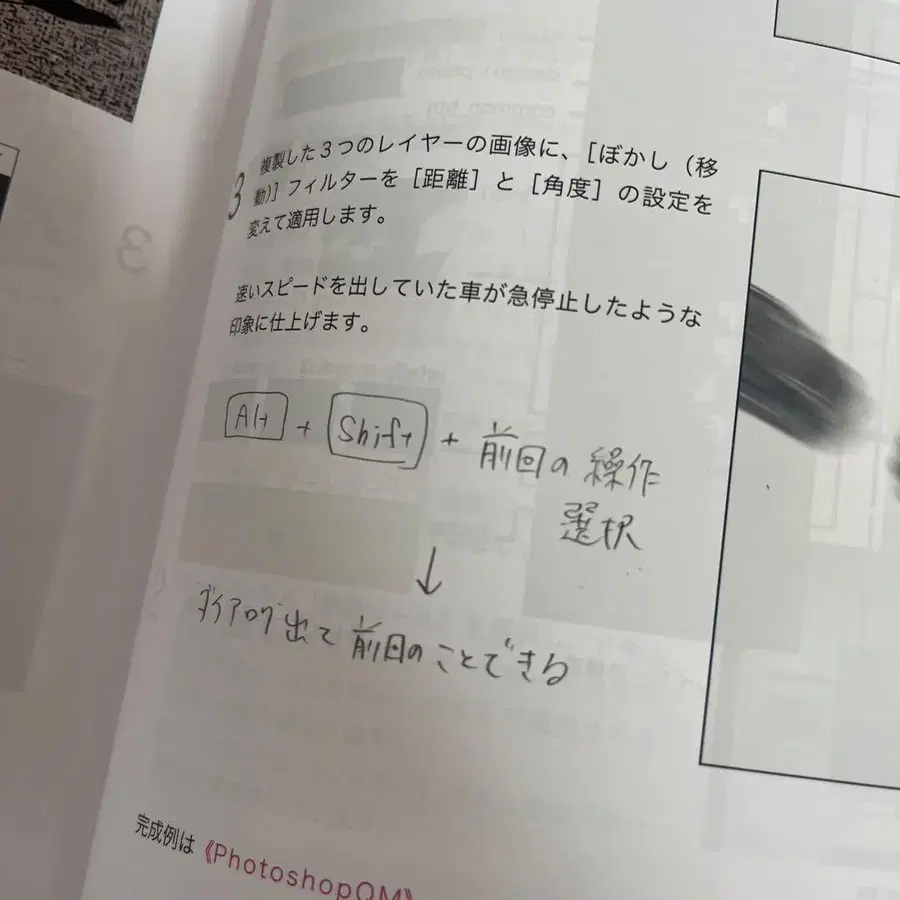 3
複製した3つのレイヤーの画像に、[ぼかし(移
動)]フィルターを[距離]と[角度]の設定を
変えて適用します。
速いスピードを出していた車が急停止したような
印象に仕上げます。
Alt + Shift + 前回の操作
選択
↓
ダイアログ出て前回のことできる
完成例は《PhotoshopQM》